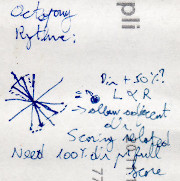 Octopony
Rythme:
Dir + 50%?
L & R
→ allow adjacent
dir
Scoring related
Need 100% dir + full
score
77